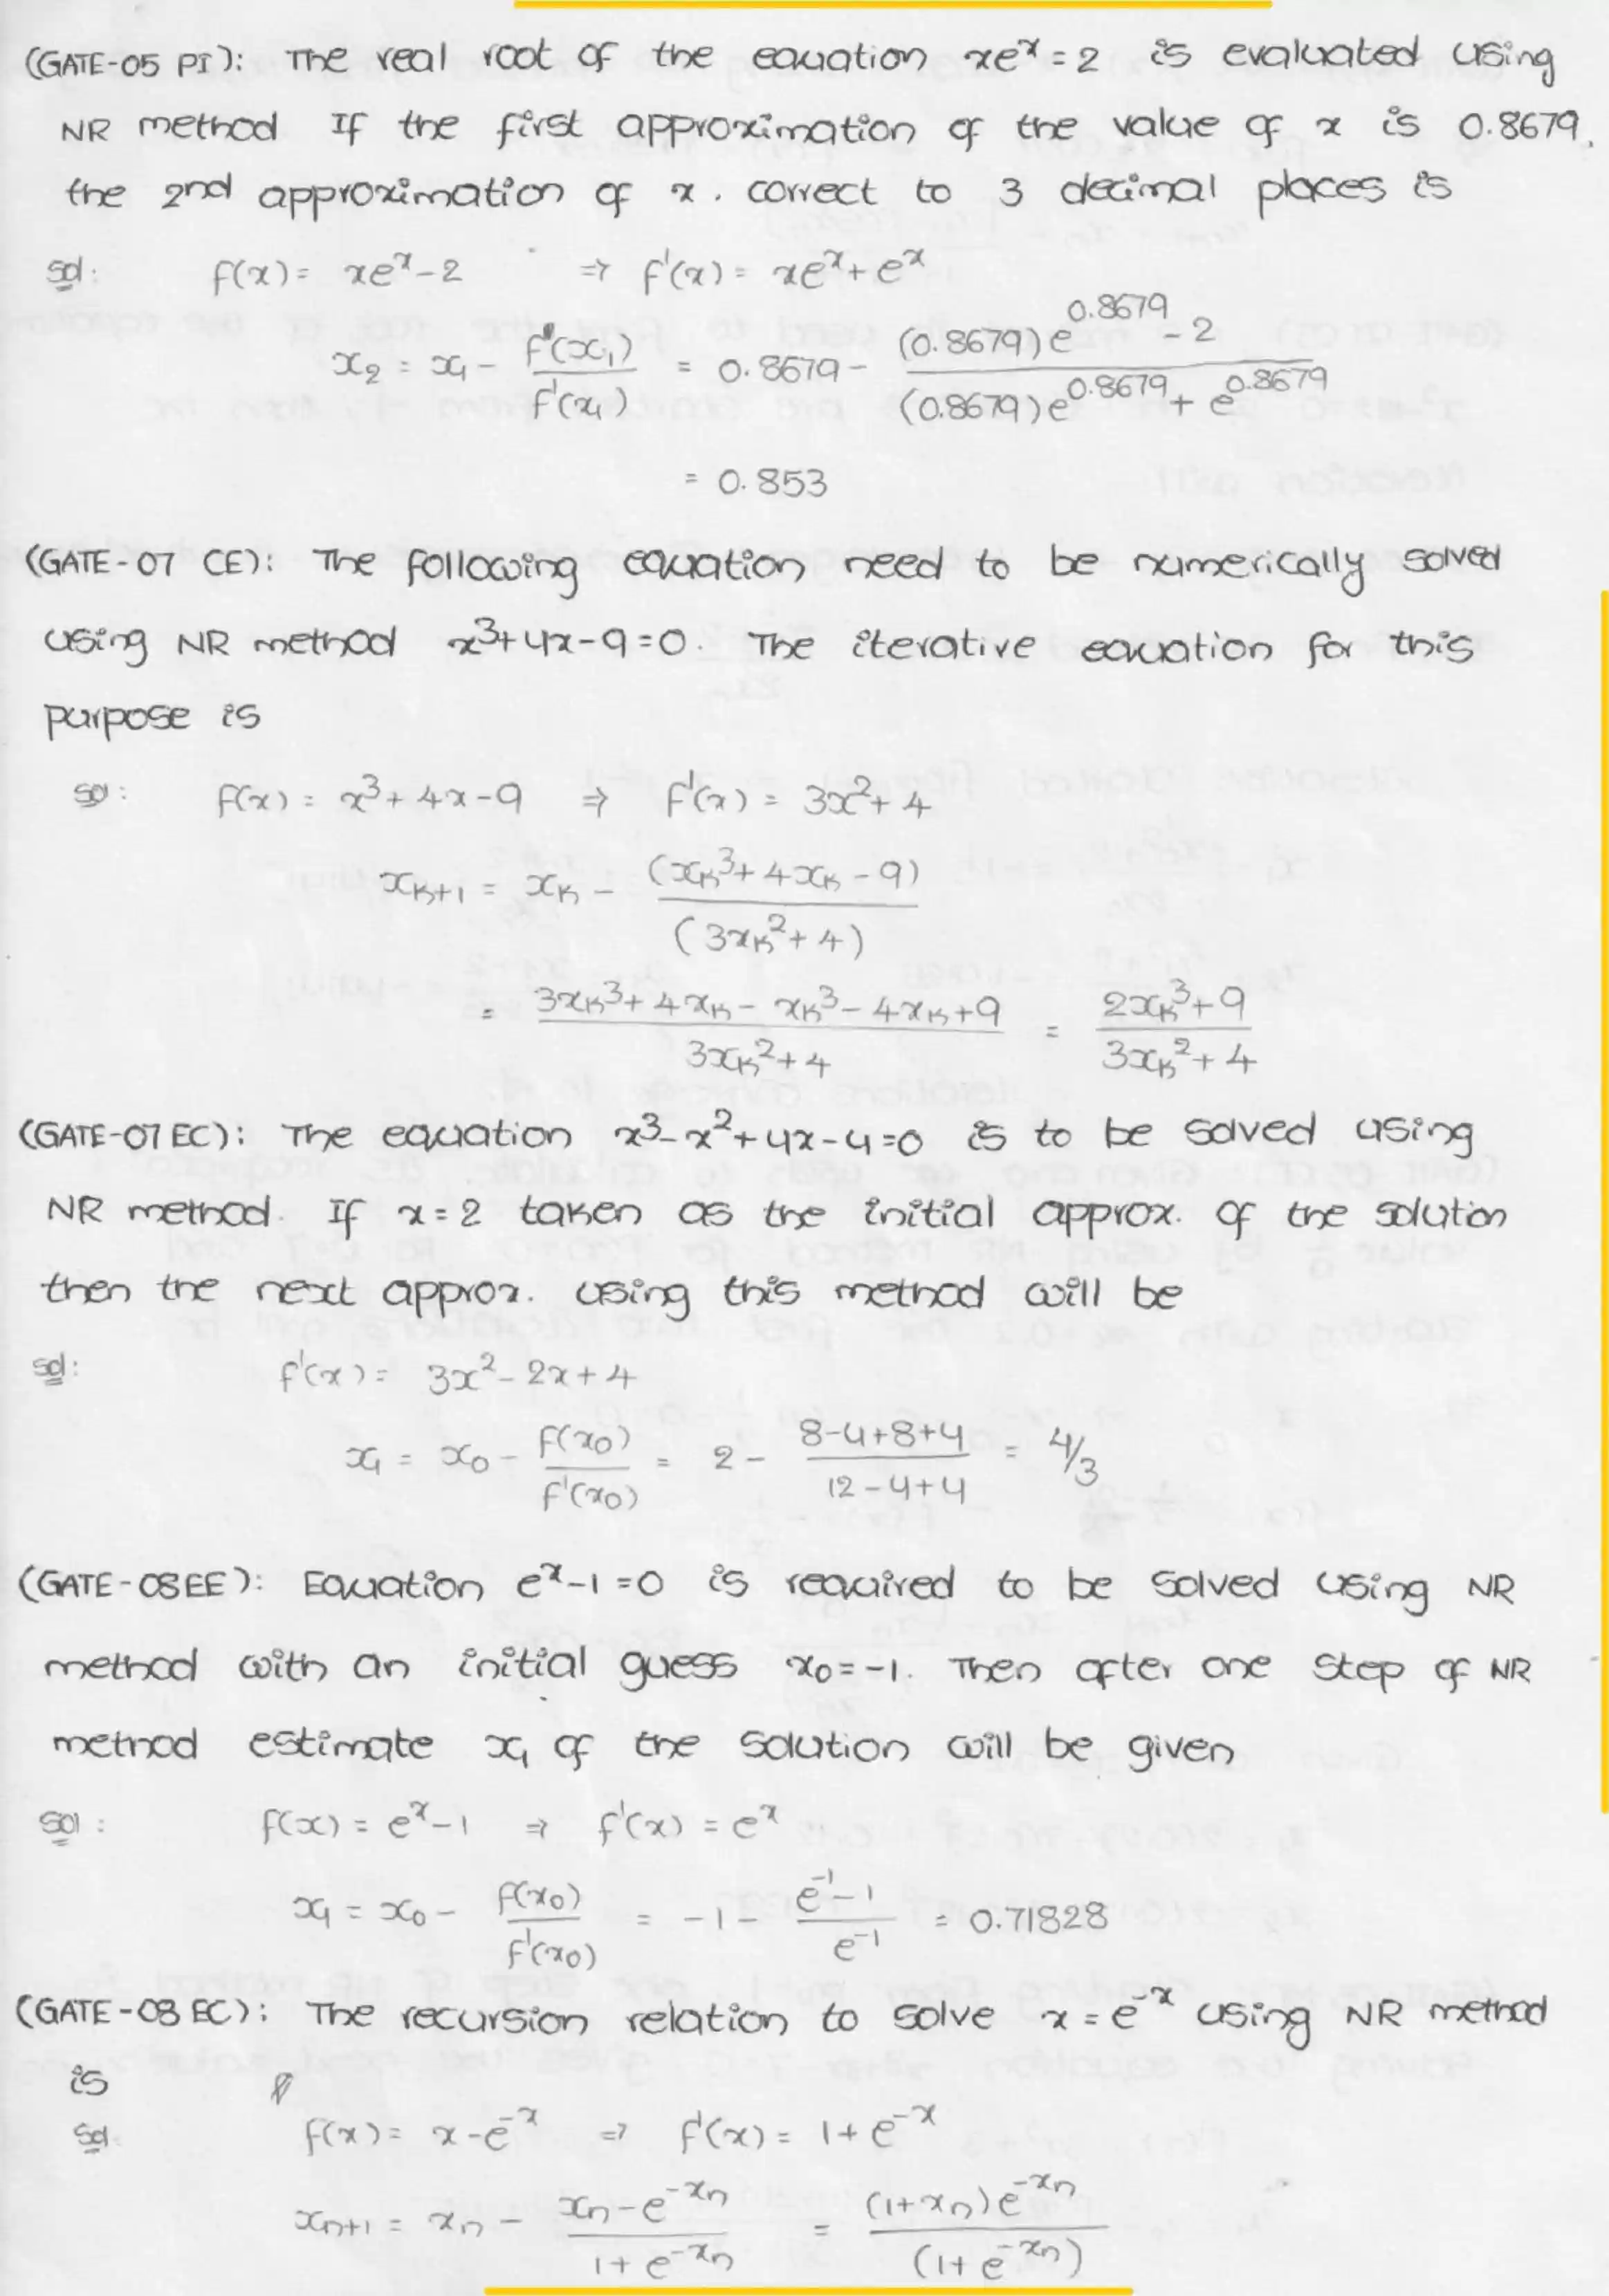 (GATE-05 PI): The real root of the equation xeˣ = 2 is evaluated using
NR method If the first approximation of the value of x is 0.8679,
the 2nd approximation of x. correct to 3 decimal places is
sol: f(x) = xeˣ - 2 ⇒ f'(x) = xeˣ + eˣ
x₂ = x₁ - f(x₁)/f'(x₁) = 0.8679 - ((0.8679)e^0.8679 - 2)/((0.8679)e^0.8679 + e^0.8679)
= 0.853
(GATE-07 CE): The following equation need to be numerically solved
using NR method x³+4x-9=0. The iterative equation for this
purpose is
sol: f(x) = x³+4x-9 ⇒ f'(x) = 3x²+4
x_{k+1} = x_k - (x_k³+4x_k-9)/(3x_k²+4)
= (3x_k³+4x_k-x_k³-4x_k+9)/(3x_k²+4) = (2x_k³+9)/(3x_k²+4)
(GATE-07 EC): The equation x³-x²+4x-4=0 is to be solved using
NR method. If x=2 taken as the initial approx. of the solution
then the next approx. using this method will be
sol: f'(x) = 3x²-2x+4
x₁ = x₀ - f(x₀)/f'(x₀) = 2 - (8-4+8+4)/(12-4+4) = 4/3
(GATE-08EE): Equation eˣ-1=0 is required to be solved using NR
method with an initial guess x₀=-1. Then after one step of NR
method estimate x₁ of the solution will be given
sol: f(x) = eˣ-1 ⇒ f'(x) = eˣ
x₁ = x₀ - f(x₀)/f'(x₀) = -1 - (e⁻¹-1)/e⁻¹ = 0.71828
(GATE-08 EC): The recursion relation to solve x = e⁻ˣ using NR method
is
sol f(x) = x-e⁻ˣ ⇒ f'(x) = 1+e⁻ˣ
x_{n+1} = x_n - (x_n-e^{-x_n})/(1+e^{-x_n}) = ((1+x_n)e^{-x_n})/((1+e^{-x_n}))